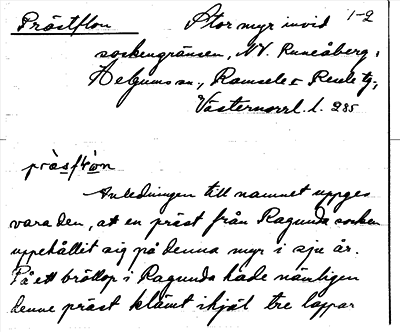 Prästflon Stor myr invid 1-2
sockengränsen, NV. Runåberg,
Helgums sn., Ramsele o Resele tg.,
Västernorrl. l. 285
Anledningen till namnet uppges
vara den, at en präst från Ragunda socken
uppehållit sig på denna myr i sju år.
På ett bröllop i Ragunda hade nämligen
denne präst klämt ihjäl tre lappar